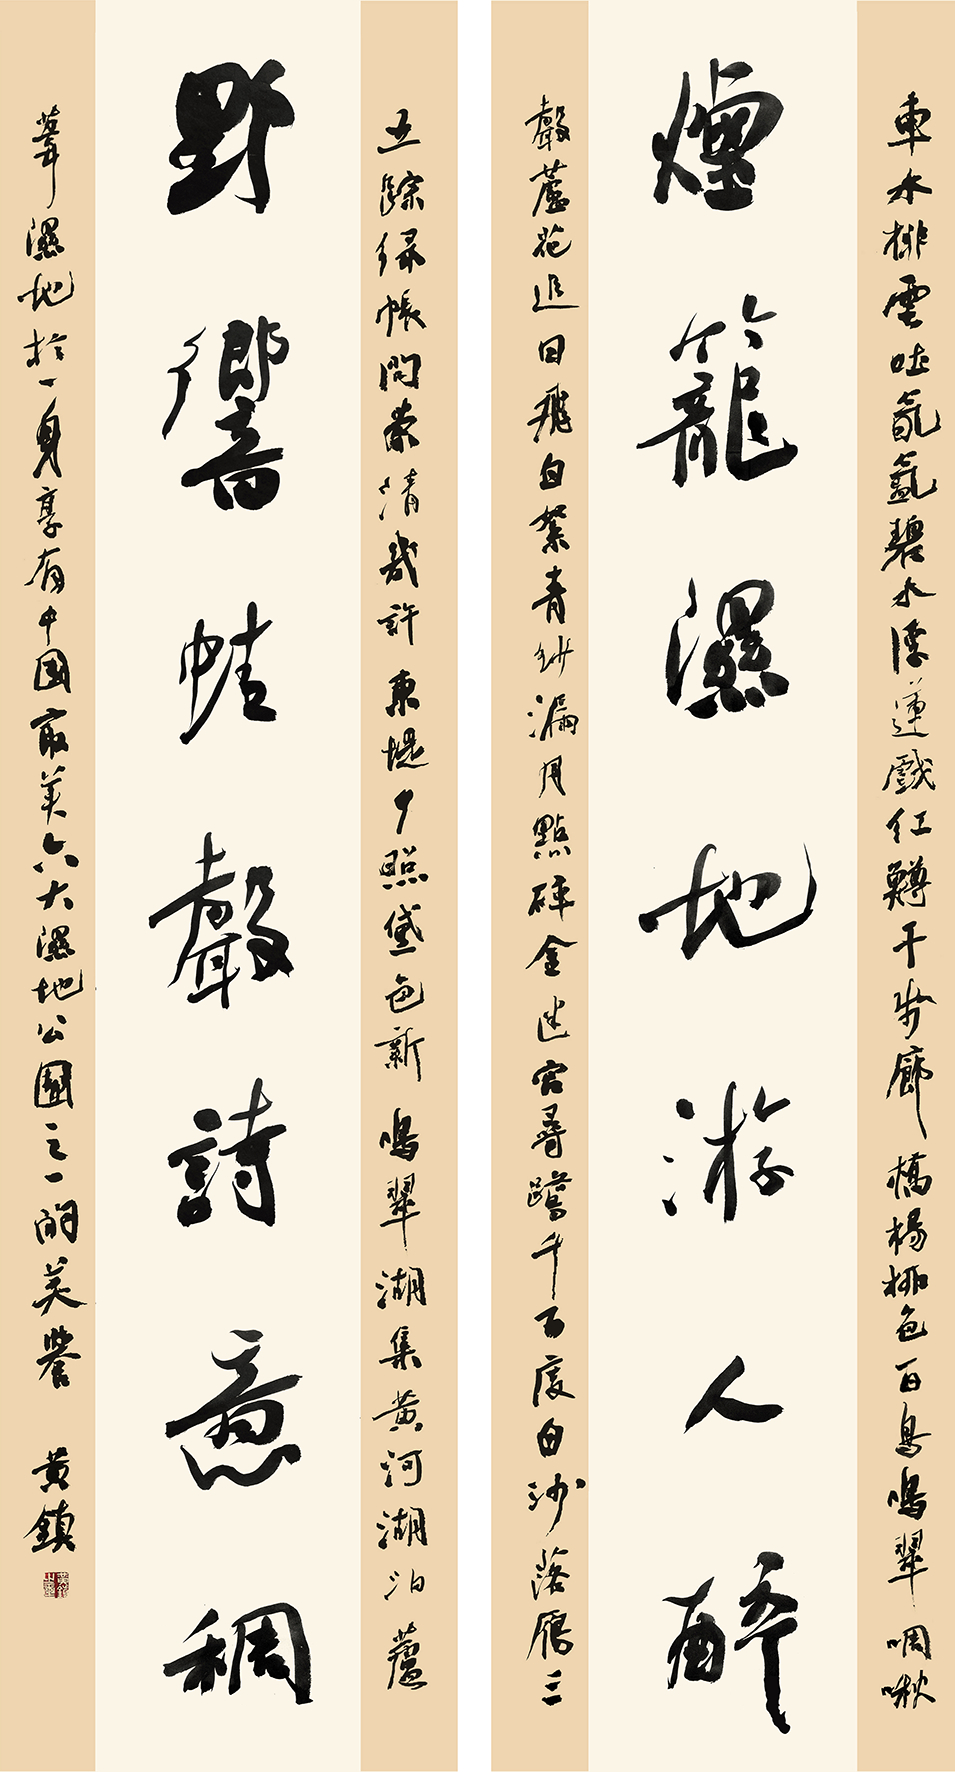 車水排雲吐氤氳碧水浮蓮戲紅鱒千步廊橋楊柳色百鳥鳴翠啁啾
煙籠濕地游人醉
聲蘆花追日飛白絮青紗漏月點碎金迷宮尋鷺千百度白沙落雁三
五踪緑帳問蒙清幾許東堤夕照黛色新鳴翠湖集黃河湖泊蘆
野響蛙聲詩意稠
葦濕地於一身享有中國最美六大濕地公園之一的美譽 黃鎮